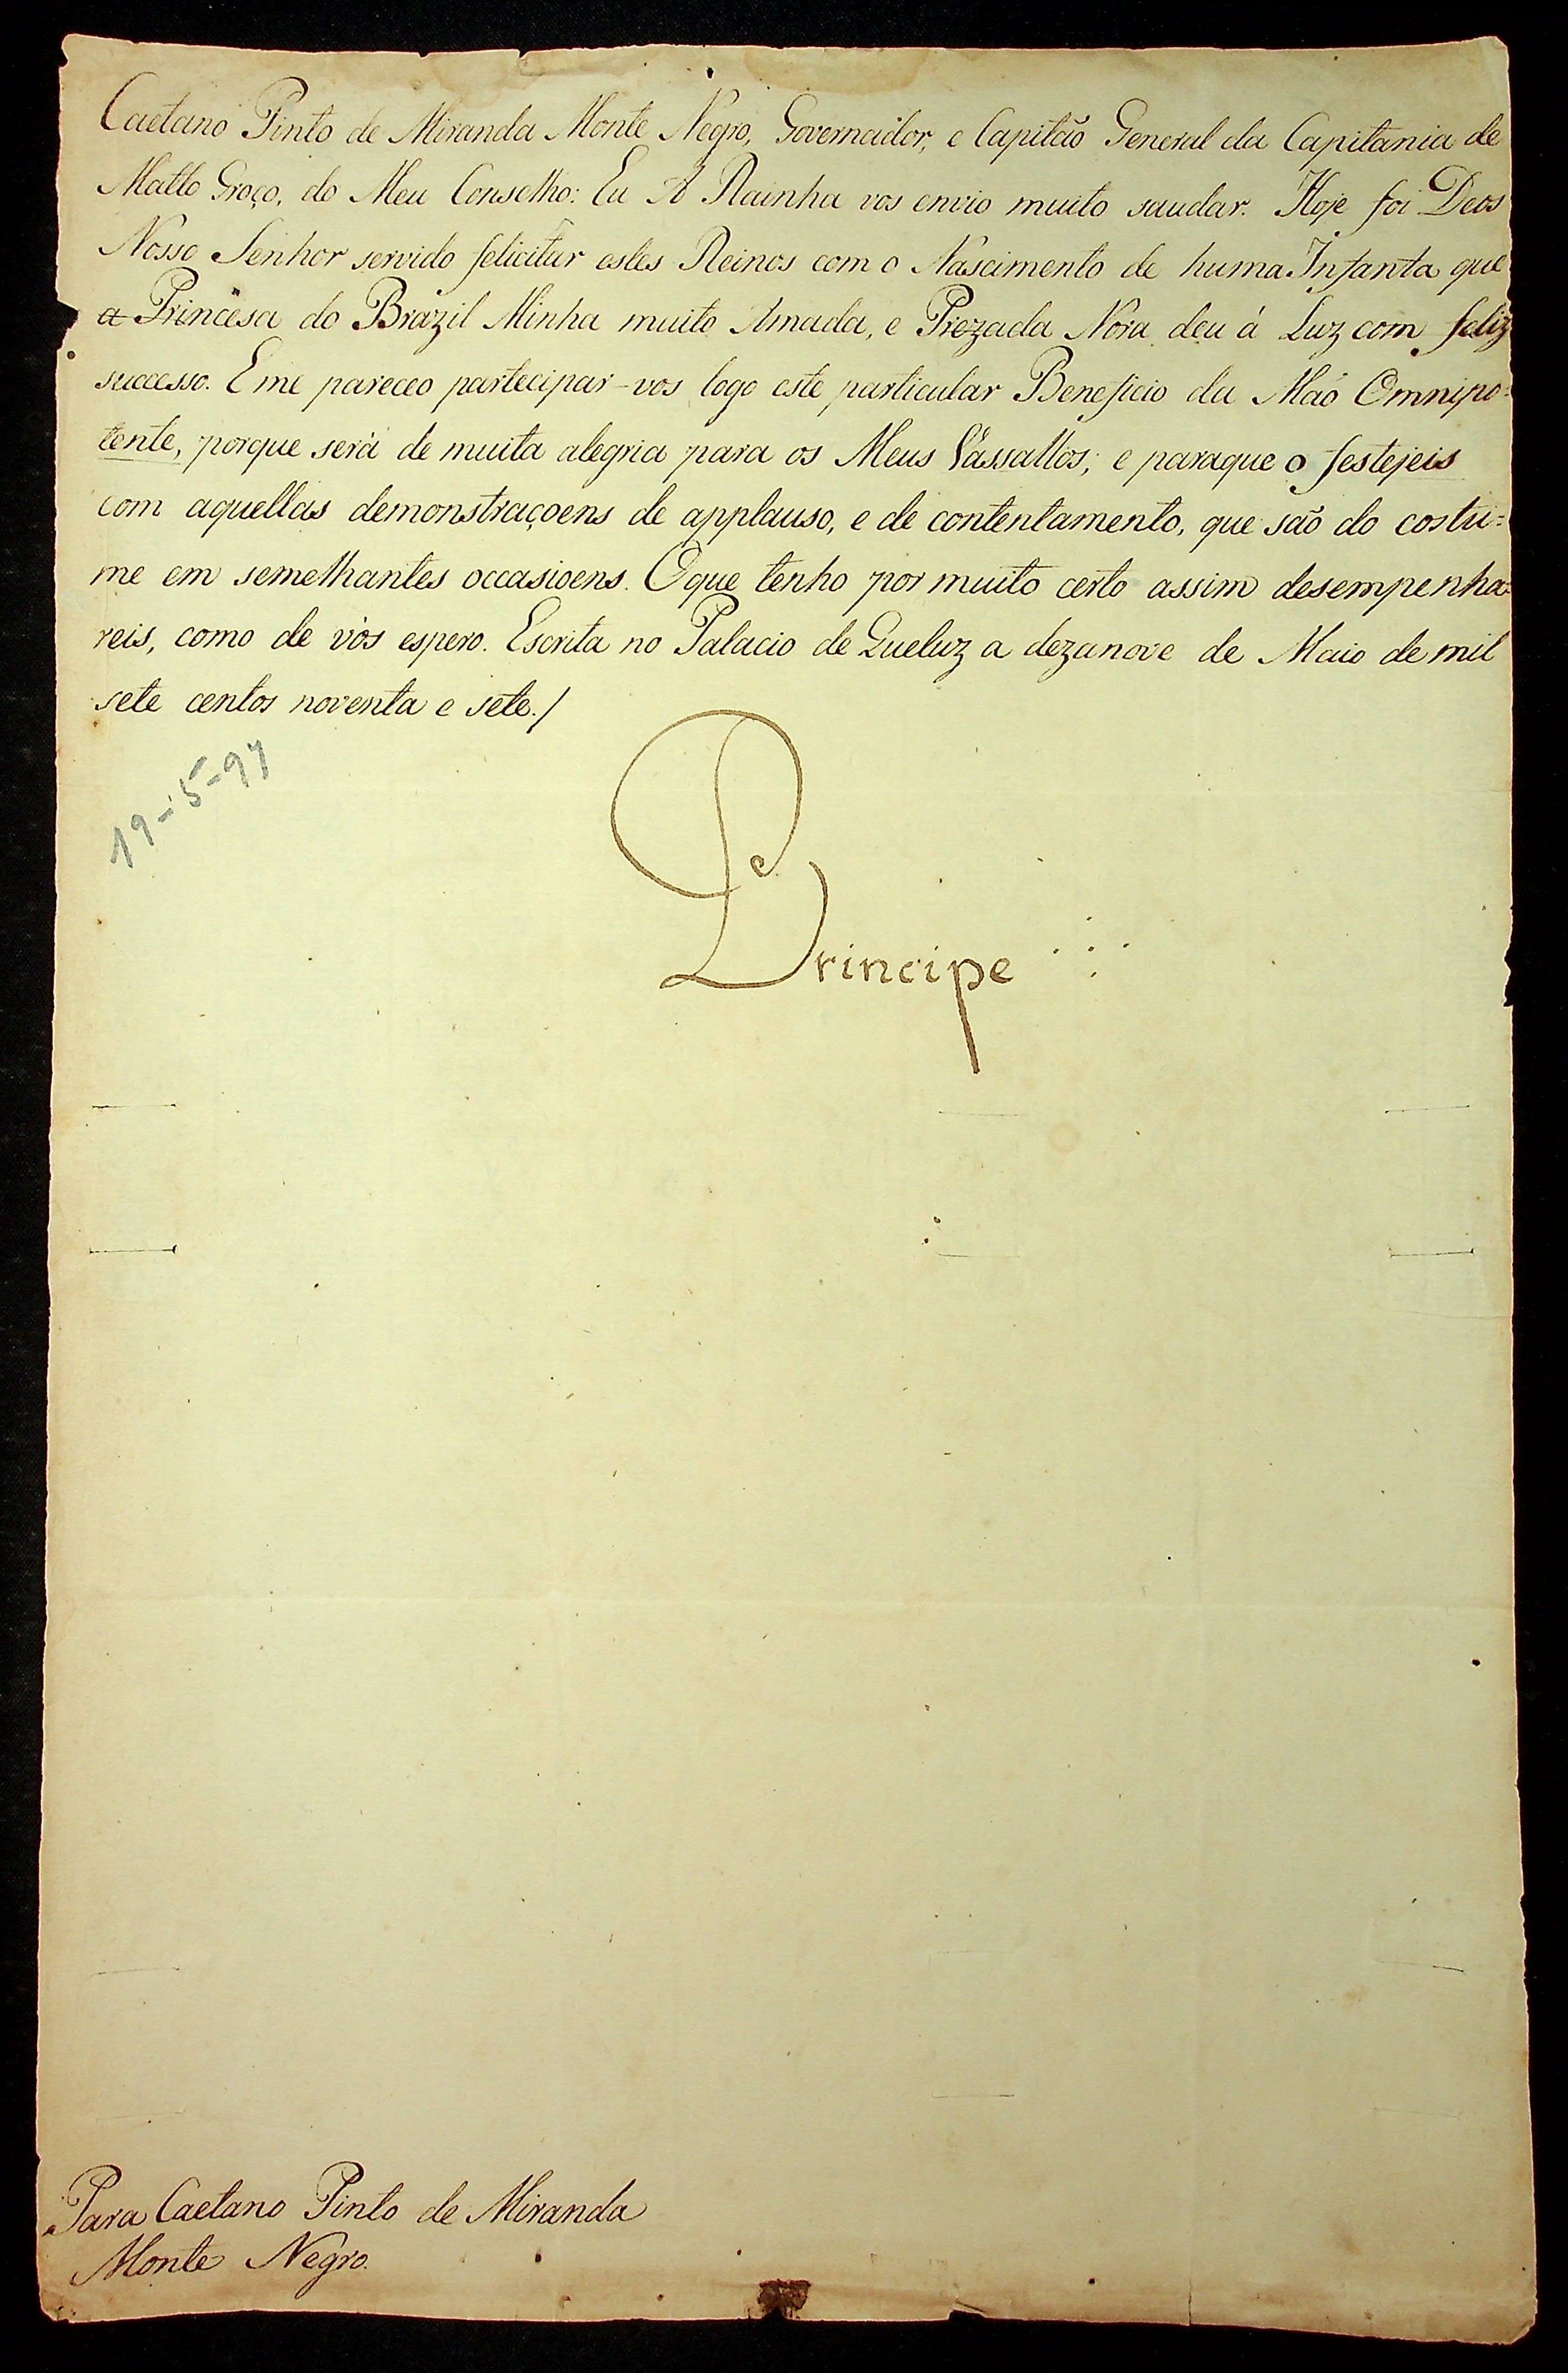 Caetano Pinto de Miranda Monte Negro, Governador, e Capitão General da Capitania de
Matto Groço, do Meu Conselho: Eu A Rainha vos envio muito saudar. Hoje foi Deos
Nosso Senhor servido felicitar estes Reinos com o Nascimento de huma Infanta que
a Princesa do Brazil Minha muito Amada, e Prezada Nora deu á Luz com feliz
successo. E me pareceo partecipar-vos logo este particular Beneficio da Mão Omnipo=
tente, porque será de muita alegria para os Meus Vassallos; e paraque o festejeis
com aquellas demonstraçoens de applauso, e de contentamento, que são do costu=
me em semelhantes occasioens. O que tenho por muito certo assim desempenha=
reis, como de vós espero. Escrita no Palacio de Queluz a dezanove de Maio de mil
sete centos noventa e sete./
19-5-97
Principe
Para Caetano Pinto de Miranda
Monte Negro.